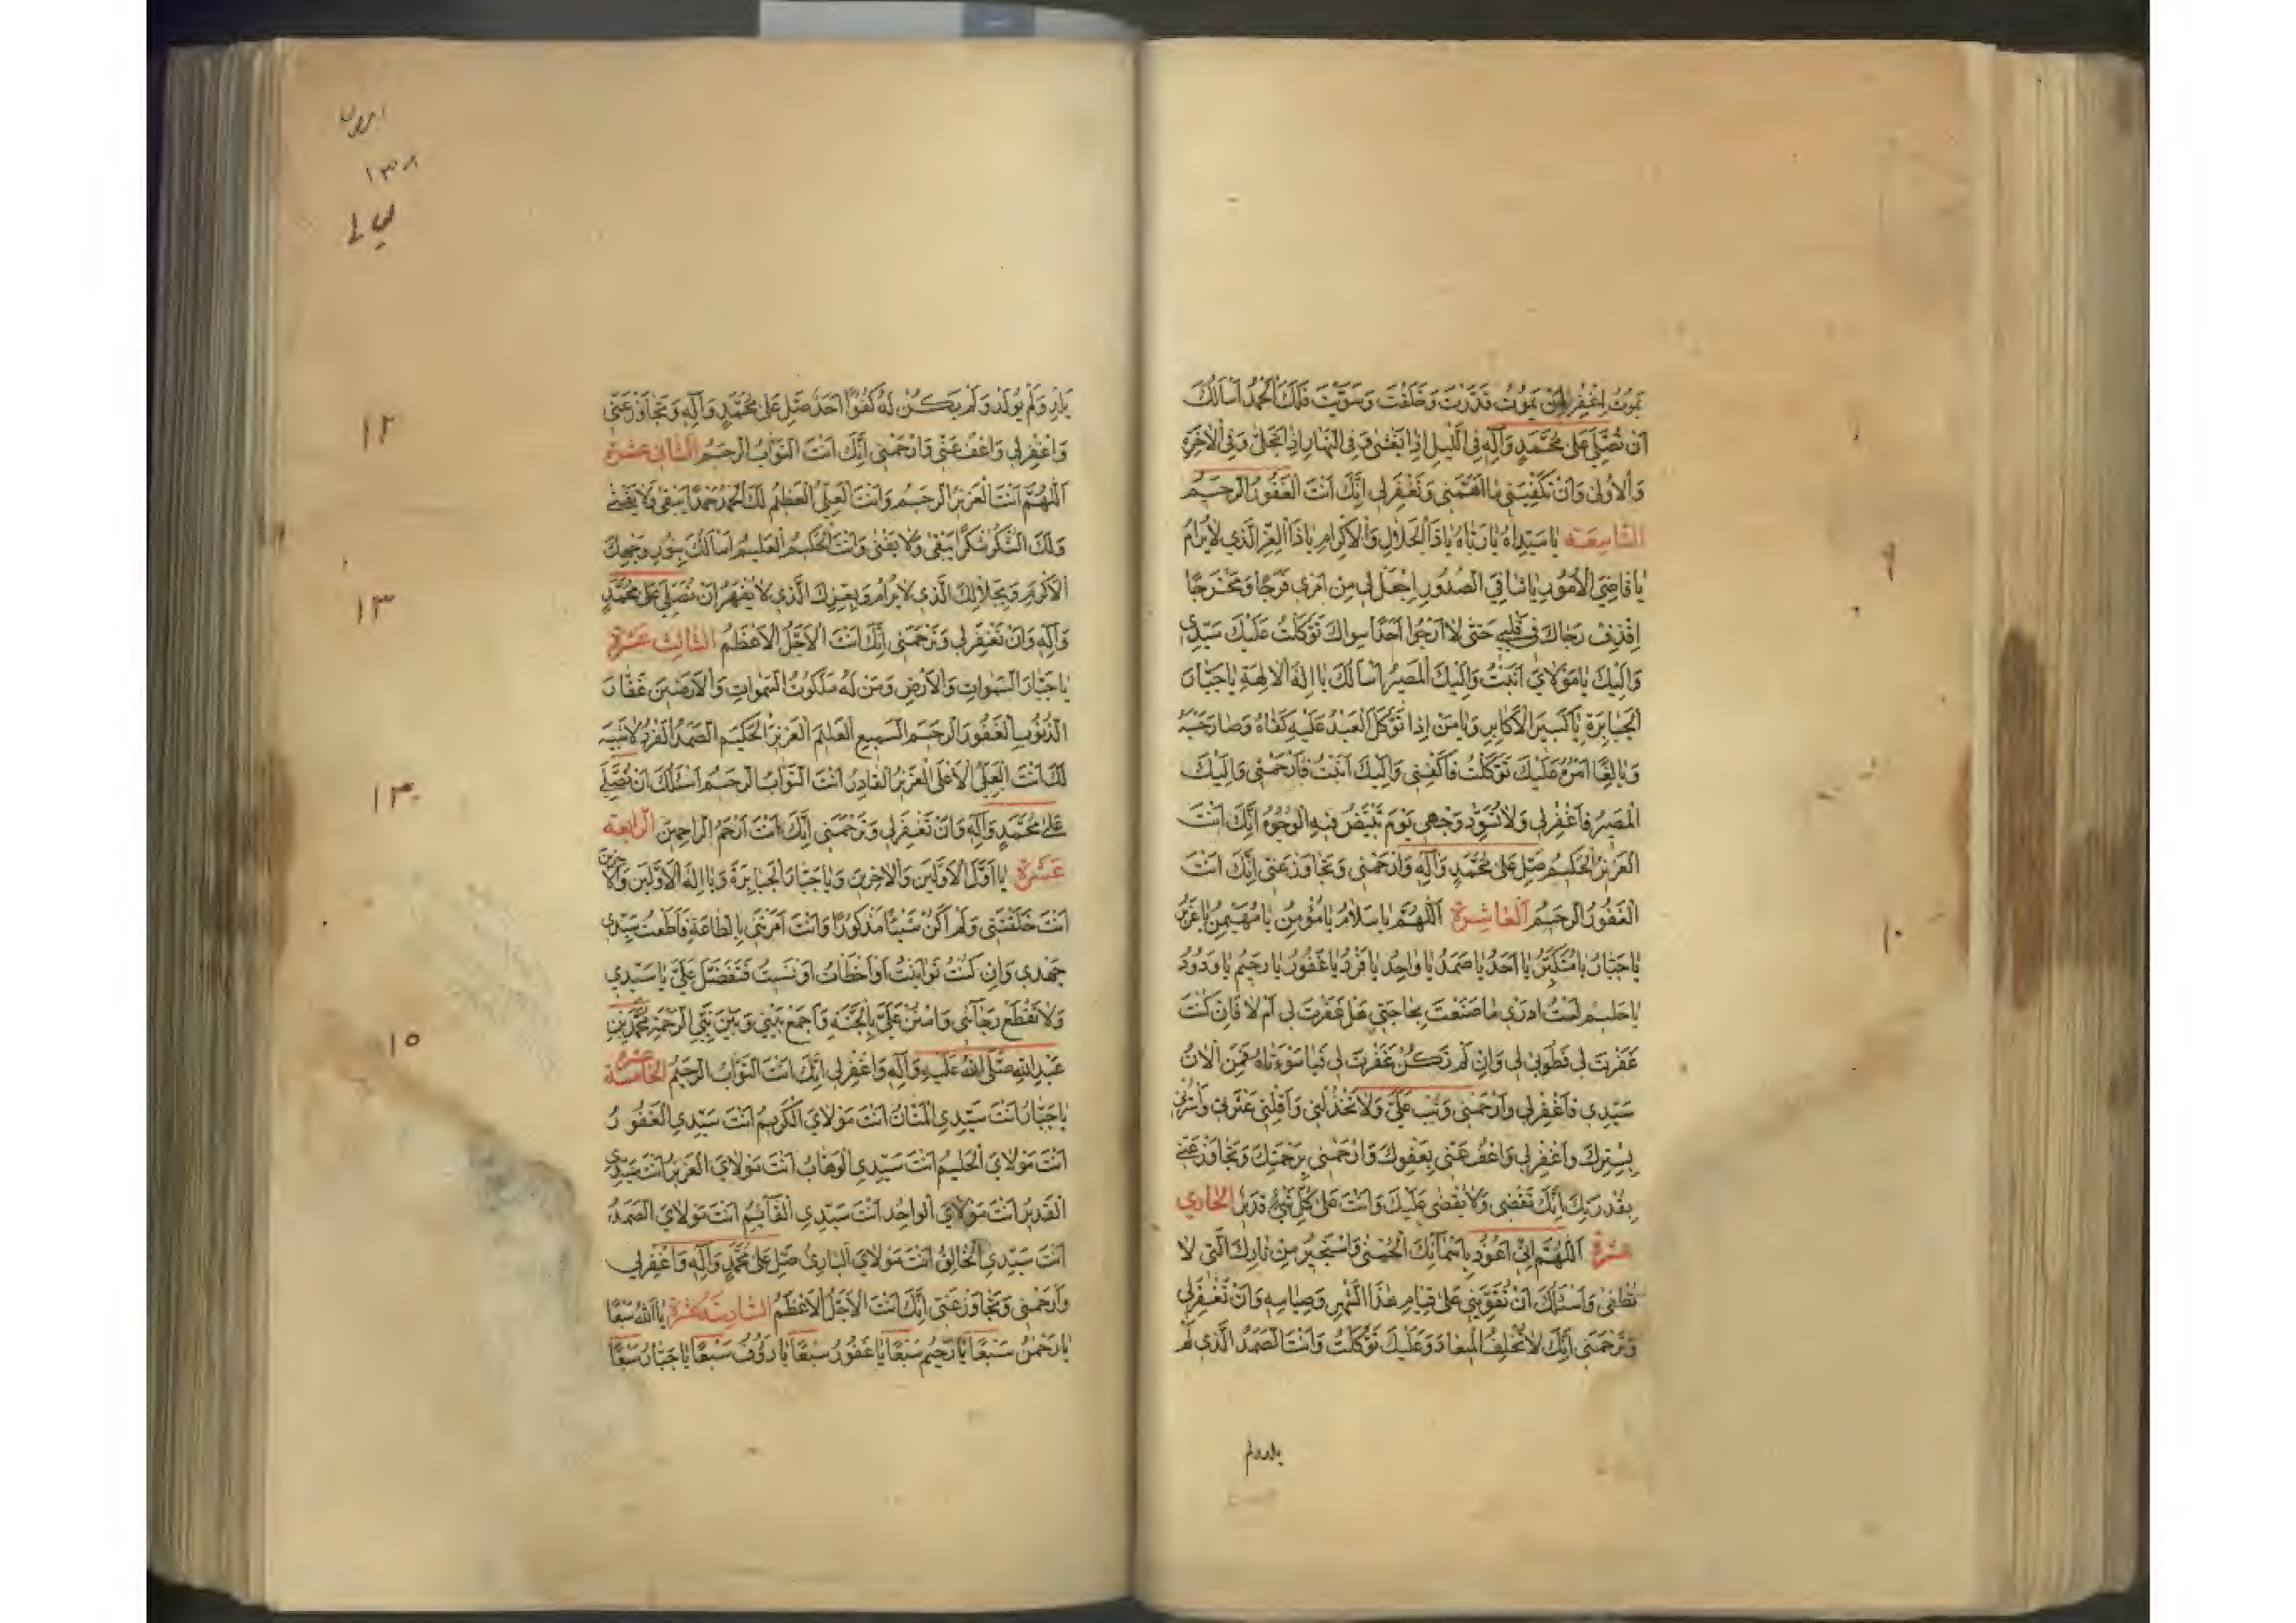 يموت اغفر لمن يموت قدرت وخلقت وسويت فلك الحمد اسألك
ان تصلي على محمد وآله في الليل اذا يغشى وفي النهار اذا تجلى وفي الآخرة
والاولى وان تكفيني ما اهمني وتغفر لي انك انت الغفور الرحيم
التاسعة يا سيداه يا رباه يا ذا الجلال والاكرام يا ذا العز الذي لا يرام
يا قاضي الامور يا شافي الصدور اجعل لي من امري فرجا ومخرجا
اقذف رجاك في قلبي حتى لا ارجوا احدا سواك توكلت عليك سيدي
واليك يا مولاي انبت واليك المصير اسألك يا اله الالهة يا جبار
الجبابرة يا كبير الاكابر ويا من اذا توكل العبد عليه كفاه وصار حسبه
وبالغا امره عليك توكلت فاكفني واليك انبت فارحمني واليك
المصير فاغفر لي ولا تسود وجهي يوم تبيض فيه الوجوه انك انت
العزيز الحكيم صل على محمد وآله وارحمني وتجاوز عني انك انت
الغفور الرحيم العاشرة اللهم يا سلام يا مؤمن يا مهيمن يا عزيز
يا جبار يا متكبر يا احد يا صمد يا واحد يا فرد يا غفور يا رحيم يا ودود
يا حليم لست ادري ما صنعت بحاجتي هل غفرت لي ام لا فان كنت
غفرت لي فطوبى لي وان لم تكن غفرت لي فيا سوءتاه فمن الآن
سيدي فاغفر لي وارحمني وتب علي ولا تخذلني واقلني عثرتي واسترني
بسترك واغفر لي واعف عني بعفوك وارحمني برحمتك وتجاوز عني
بقدرتك انك تقضي ولا يقضى عليك وانت على كل شيء قدير الحادي
عشرة اللهم اني اعوذ باسمائك الحسنى واستجير من نارك التي لا
تطفى واسئلك ان تقويني على قيام هذا الشهر وصيامه وان تغفر لي
وترحمني انك لا تخلف الميعاد وعليك توكلت وانت الصمد الذي لم
يلد ولم
٩
١٠
يلد ولم يولد ولم يكن له كفوا احد صل على محمد وآله وتجاوز عني
واغفر لي واعف عني وارحمني انك انت التواب الرحيم الثاني عشرة
اللهم انت العزيز الرحيم وانت العلي العظيم لك الحمد حمدا يبقى ولا يفنى
ولك الشكر شكرا يبقى ولا يفنى وانت الحكيم العليم اسألك بنور وجهك
الاكرم وبجلالك الذي لا يرام وبعزك الذي لا يقهر ان تصلي على محمد
وآله وان تغفر لي وترحمني انك انت الاجل الاعظم الثالث عشرة
يا جبار السموات والارض ومن له ملكوت السموات والارضين غفار
الذنوب الغفور الرحيم السميع العليم العزيز الحكيم الصمد الفرد لا شبيه
لك انت العلي الاعلى العزيز القادر انت التواب الرحيم اسئلك ان تصلي
على محمد وآله وان تغفر لي وترحمني انك انت ارحم الراحمين الرابعة
عشرة يا اول الاولين والآخرين ويا جبار الجبابرة ويا اله الاولين والآخرين
انت خلقتني ولم اكن شيئا مذكورا وانت امرتني بالطاعة فاطعت سيدي
جهدي وان كنت توانيت او اخطات او نسيت فتفضل علي يا سيدي
ولا تقطع رجائي وامنن علي بالجنة واجمع بيني وبين نبي الرحمة محمد بن
عبد الله صلى الله عليه وآله واغفر لي انك انت التواب الرحيم الخامسة عشرة
يا جبار انت سيدي المنان انت مولاي الكريم انت سيدي الغفور
انت مولاي الحليم انت سيدي الوهاب انت مولاي العزيز انت سيدي
القدير انت مولاي الواحد انت سيدي القائم انت مولاي الصمد
انت سيدي الخالق انت مولاي الباري صل على محمد وآله واغفر لي
وارحمني وتجاوز عني انك انت الاجل الاعظم السادسة عشرة يا الله سبعا
يا رحمن سبعا يا رحيم سبعا يا غفور سبعا يا رؤف سبعا يا جبار سبعا
١٣٨
١٢
١٣
١٣
١٥